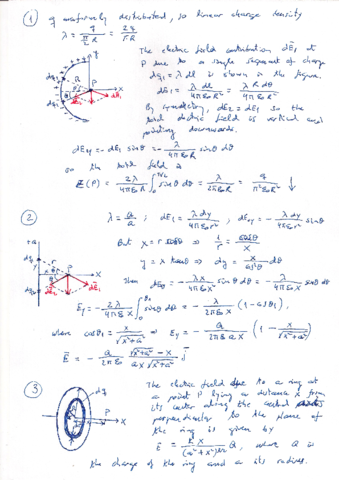 ① q uniformly distributed, so linear charge density
λ = q / (π/2 R) = 2q / πR
The electric field contribution dE₁ at
P due to a single segment of charge
dq₁ = λ dl is shown in the figure.
dE₁ = λ dl / 4πε₀R² = λ R dθ / 4πε₀R²
By symmetry, dE₂ = dE₁ so the
total electric field is vertical and
pointing downwards.
dE₁y = -dE₁ sinθ = - λ / 4πε₀R sinθ dθ
so the total field is
E(P) = 2λ / 4πε₀R ∫₀^π/2 sinθ dθ = λ / 2πε₀R = q / π²ε₀R² ↓
② λ = Q/a ; dE₁ = λ dy / 4πε₀r² , dE₁y = - λ dy / 4πε₀r² sinθ
But x = r cosθ ⇒ 1/r = cosθ / x
y = x tanθ ⇒ dy = x / cos²θ dθ
Then dE₁y = - λ x / 4πε₀x² sinθ dθ = - λ / 4πε₀x sinθ dθ
Ey = - 2λ / 4πε₀x ∫₀^θ₁ sinθ dθ = - λ / 2πε₀x (1 - cosθ₁),
where cosθ₁ = x / √x²+a² ⇒ Ey = - Q / 2πε₀ax (1 - x / √x²+a²)
E = - Q / 2πε₀ √x²+a² - x / ax√x²+a² j
③ The electric field due to a ring at
a point P lying a distance x from
its center along the central
perpendicular to the plane of
the ring is given by
E = k x / (a²+x²)^3/2 Q, where Q is
the charge of the ring and a its radius.